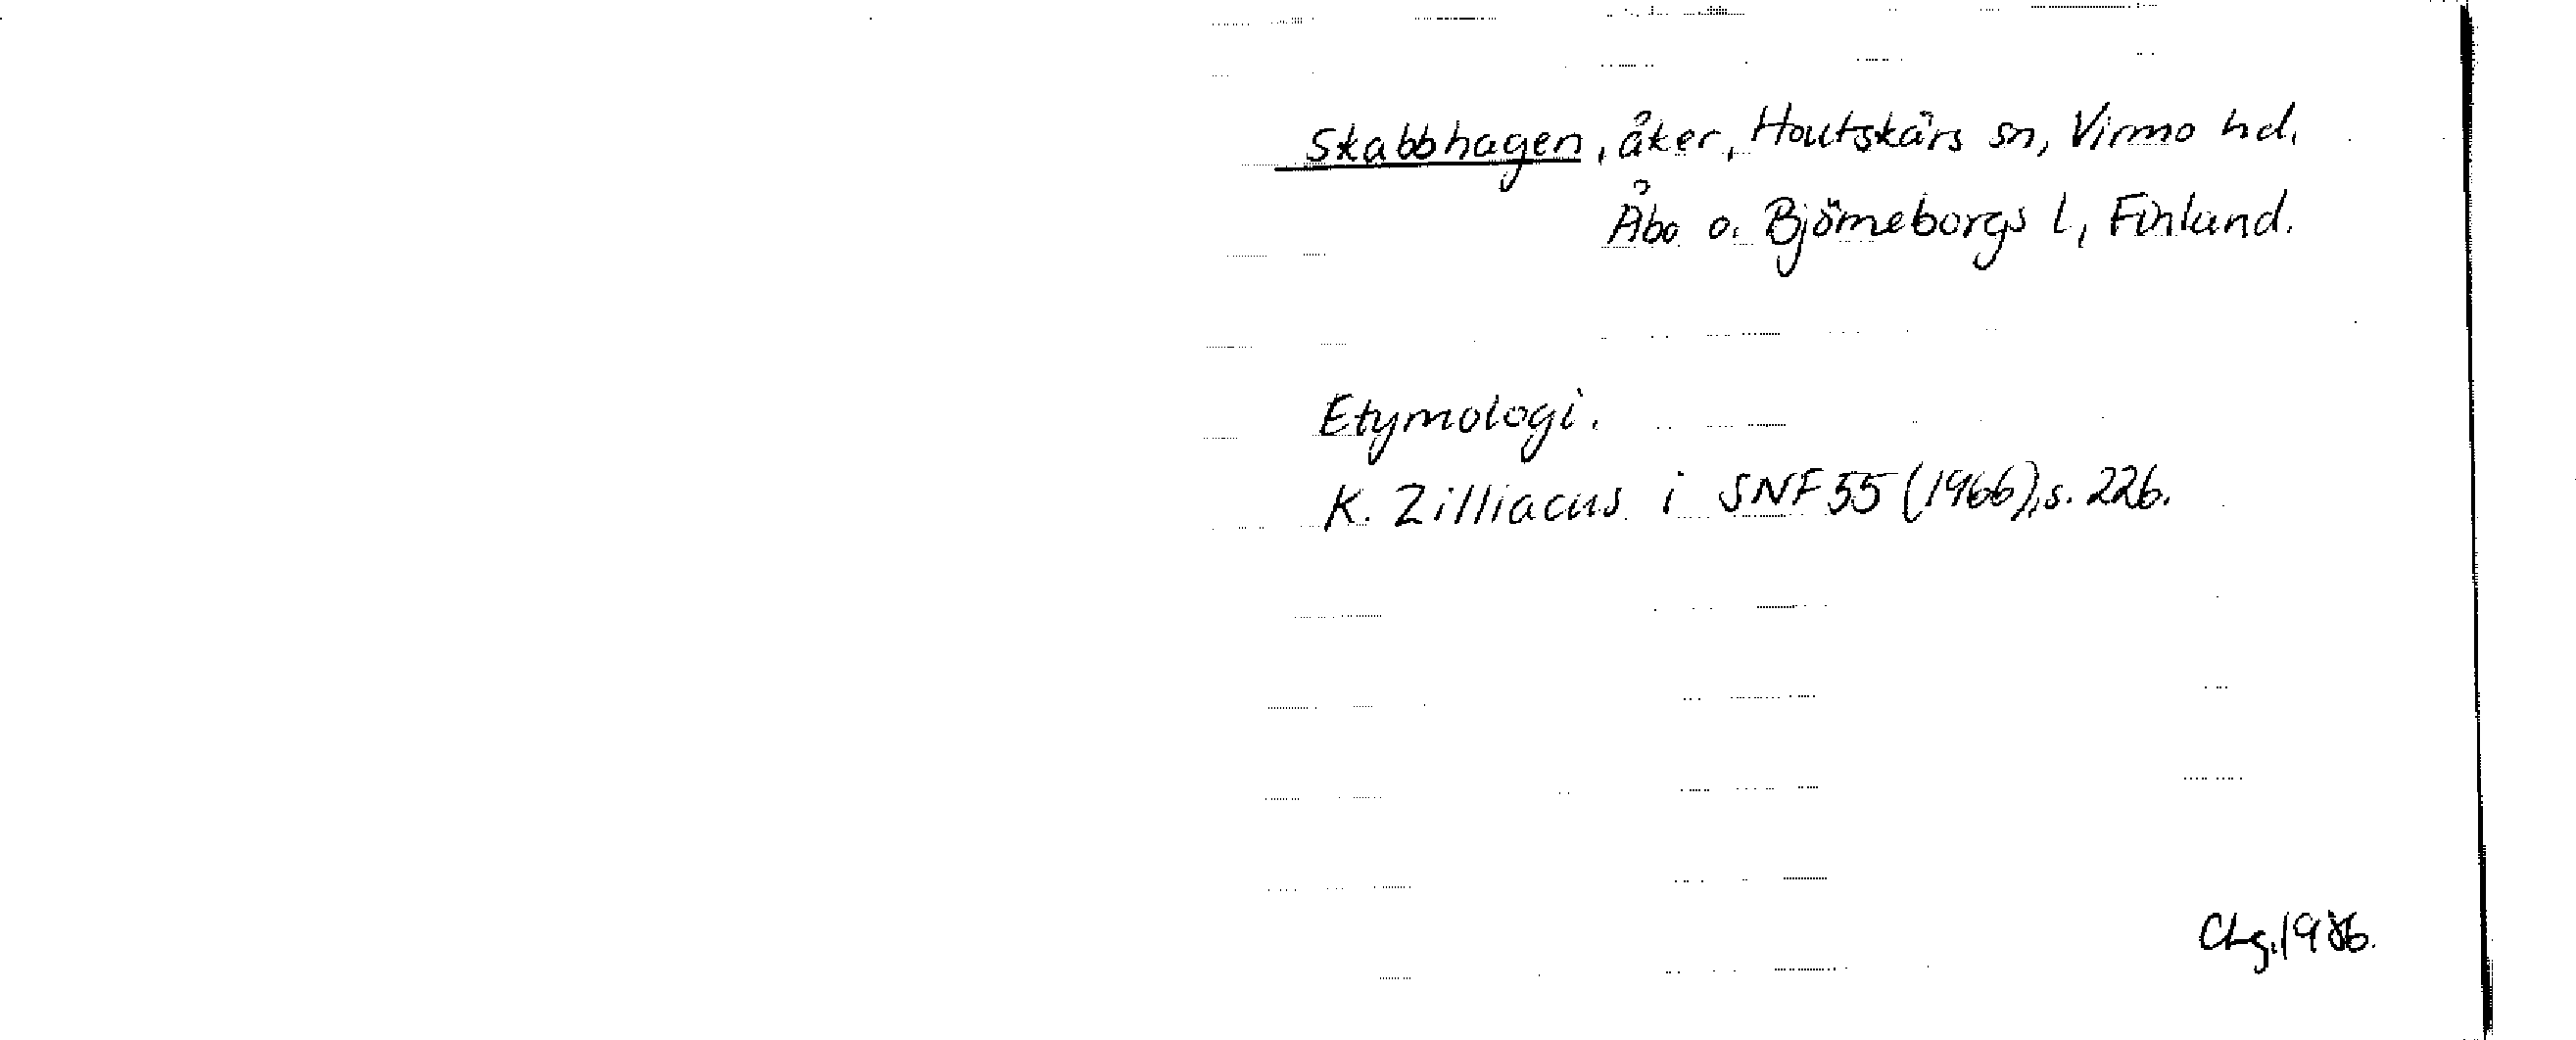 Skabbhagen, åker, Houtskärs sn, Virmo hd.
Åbo o. Björneborgs l, Finland.
Etymologi.
K. Zilliacus i SNF 55 (1966), s. 226.
Chg. 1986.